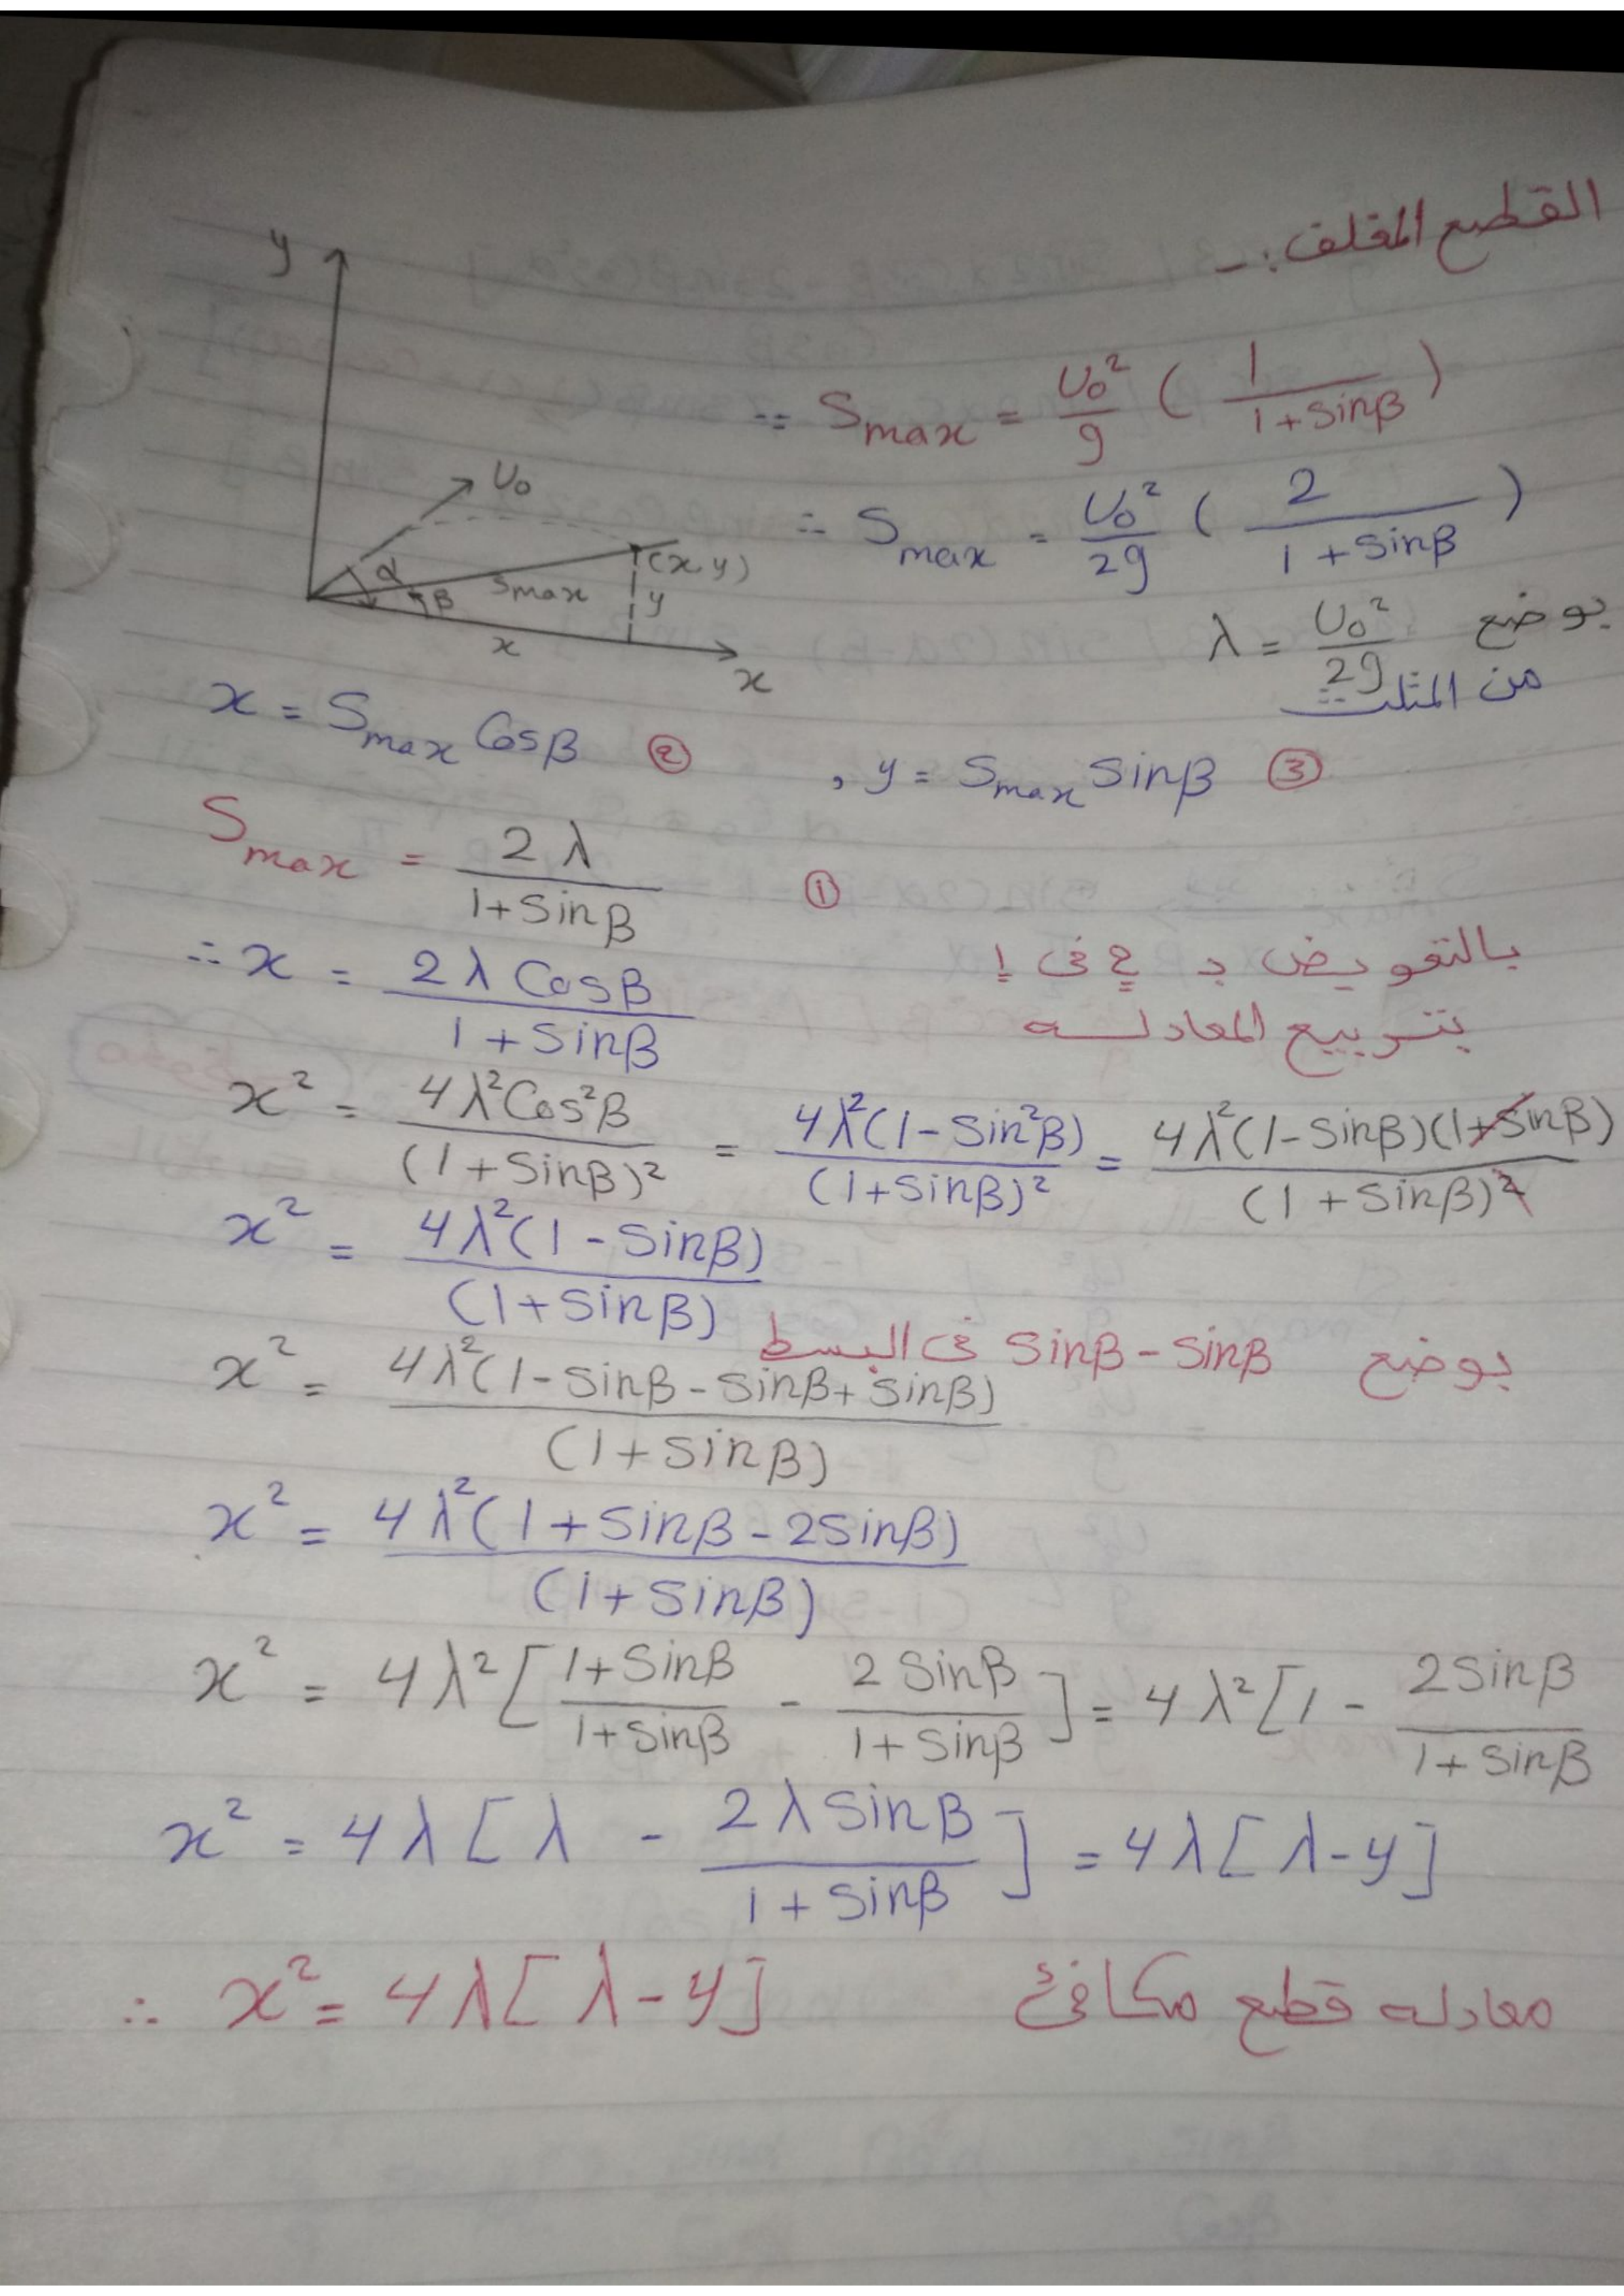 القطع المغلف :-
y
∵ Smax = U₀²/g ( 1/(1+Sinβ) )
U₀
∴ Smax = U₀²/2g ( 2/(1+Sinβ) )
α β Smax (x,y) y
x x
بوضع λ = U₀²/2g
من المثلث
x = Smax Cosβ ② , y = Smax Sinβ ③
Smax = 2λ/(1+Sinβ) ①
∴ x = 2λ Cosβ/(1+Sinβ) بالتعويض ب 2 فى 1
بتربيع المعادله
x² = 4λ²Cos²β/(1+Sinβ)² = 4λ²(1-Sin²β)/(1+Sinβ)² = 4λ²(1-Sinβ)(1+Sinβ)/(1+Sinβ)²
x² = 4λ²(1-Sinβ)/(1+Sinβ)
بوضع Sinβ - Sinβ فى البسط
x² = 4λ²(1-Sinβ-Sinβ+Sinβ)/(1+Sinβ)
x² = 4λ²(1+Sinβ-2Sinβ)/(1+Sinβ)
x² = 4λ²[(1+Sinβ)/(1+Sinβ) - 2Sinβ/(1+Sinβ)] = 4λ²[1 - 2Sinβ/(1+Sinβ)
x² = 4λ[λ - 2λSinβ/(1+Sinβ)] = 4λ[λ-y]
∴ x² = 4λ[λ-y] معادله قطع مكافئ